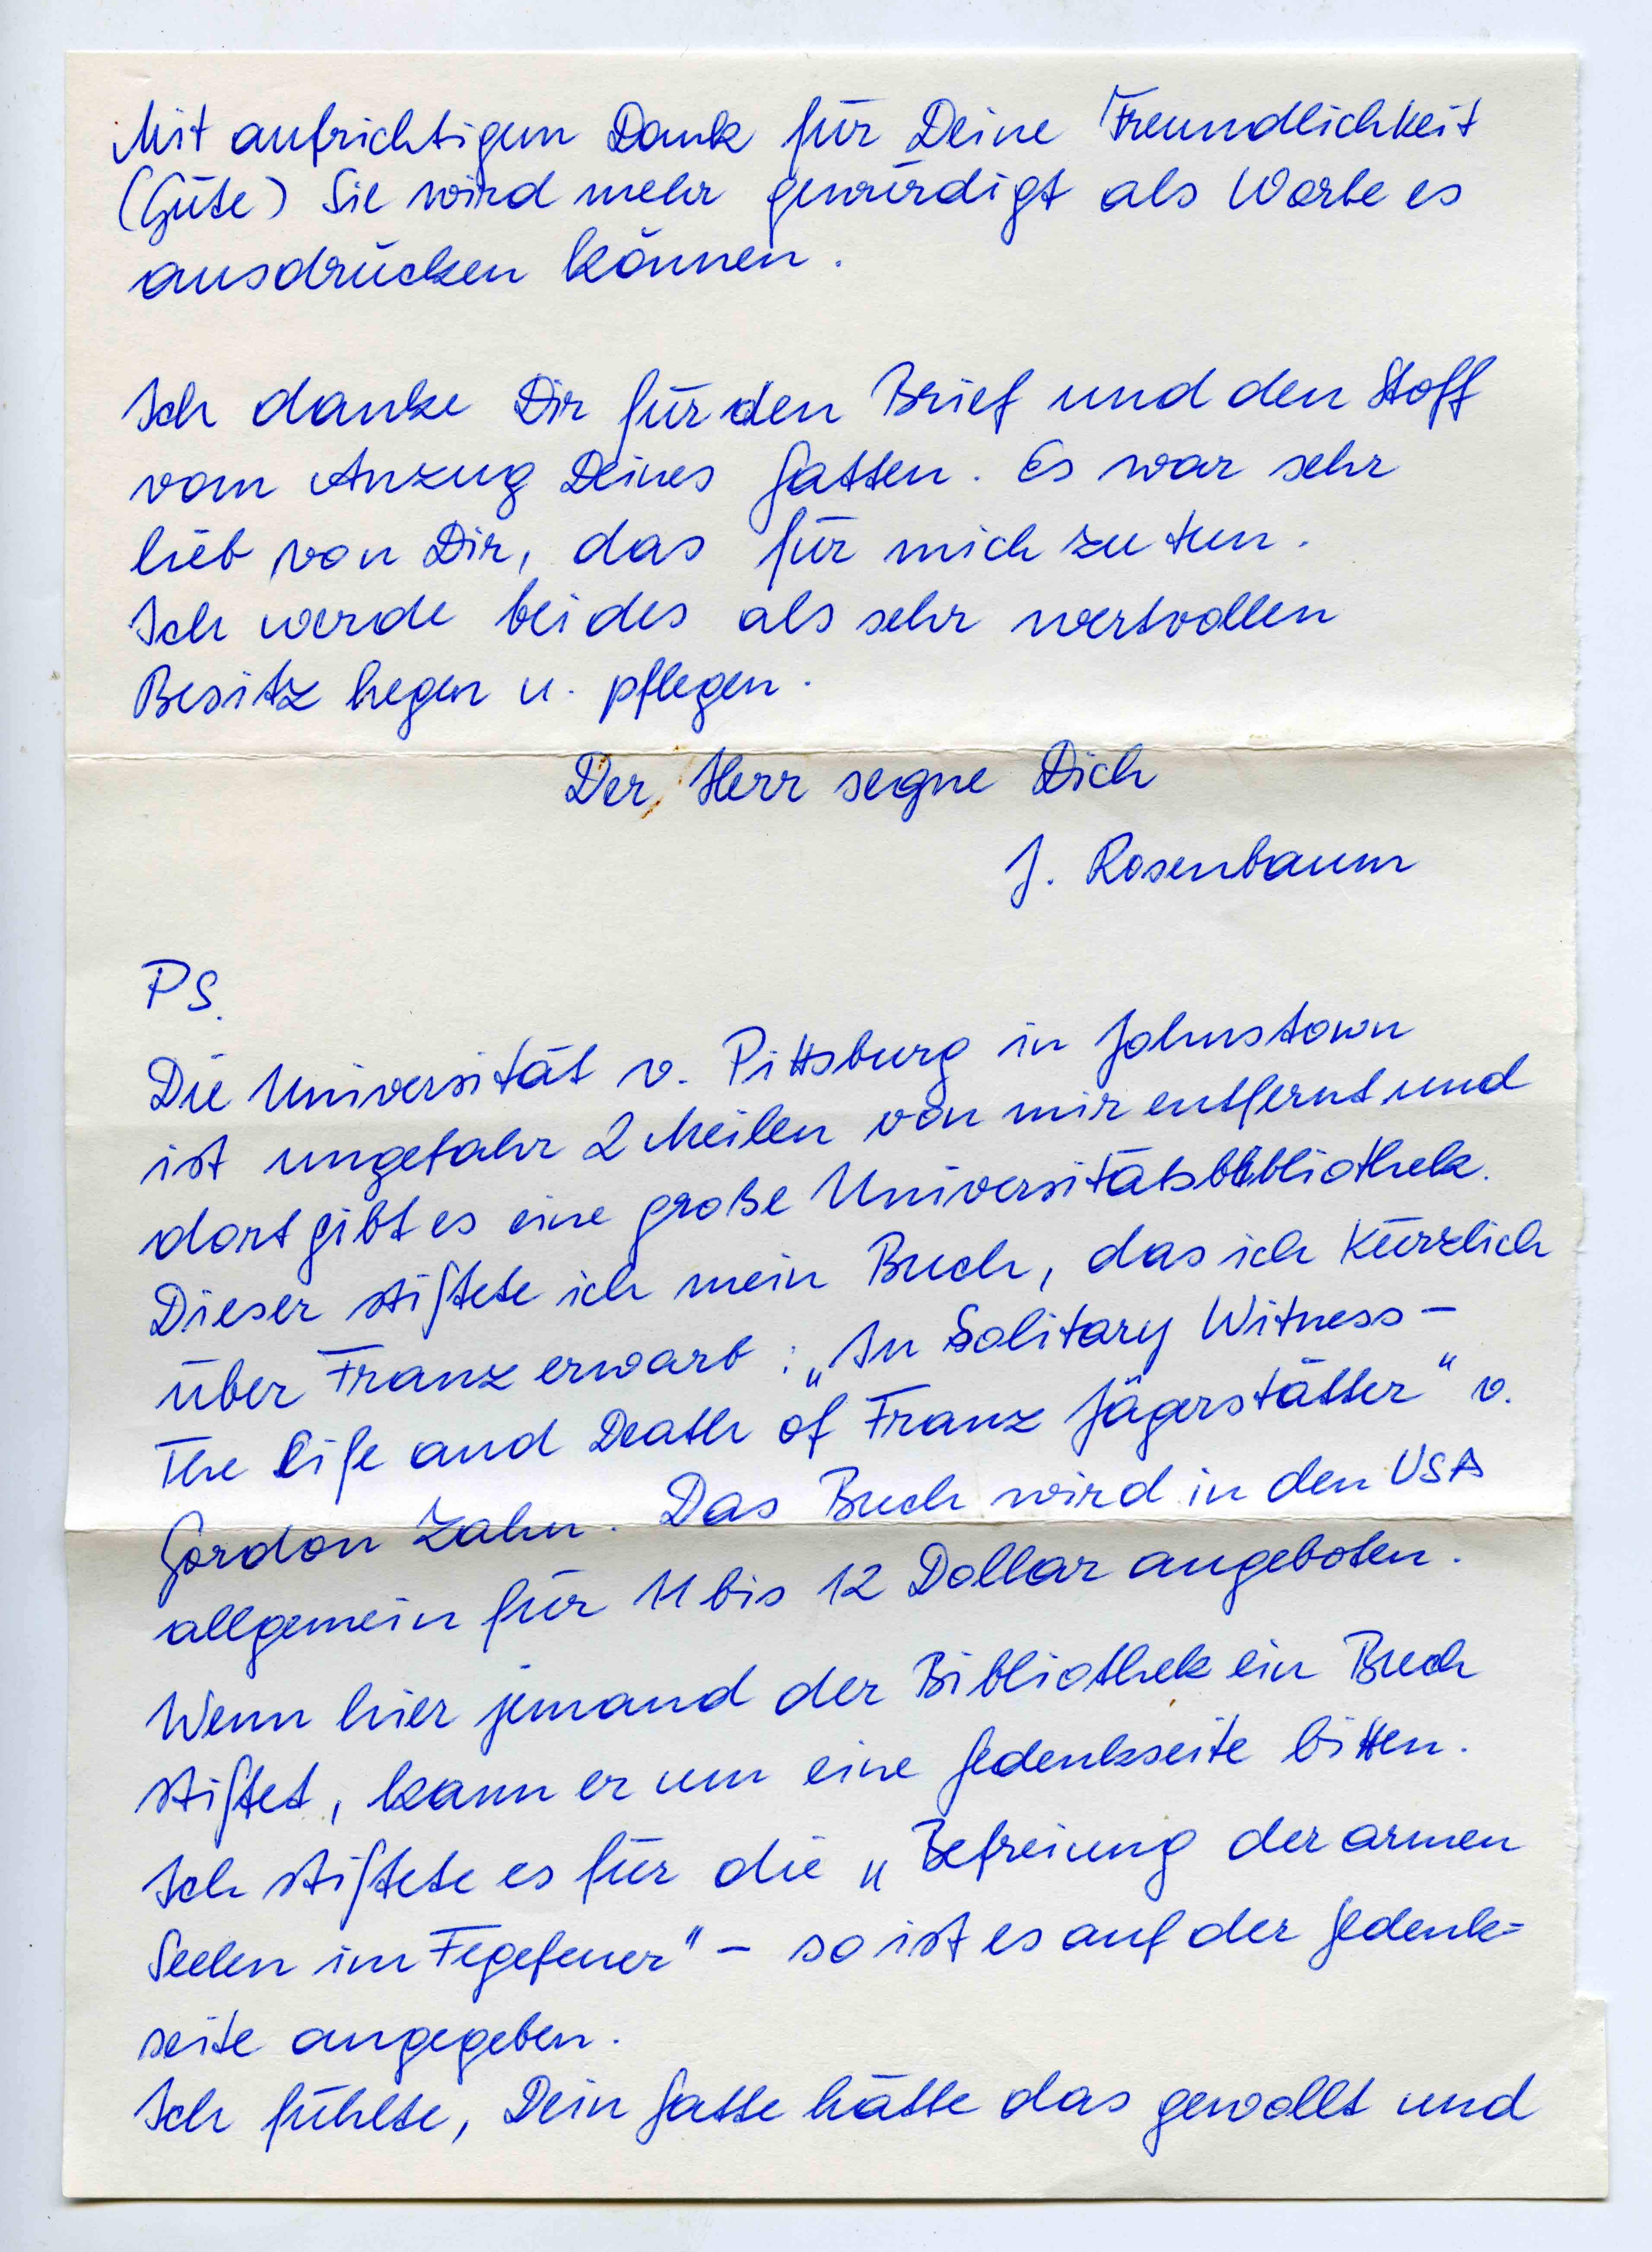 Mit aufrichtigem Dank für Deine Freundlichkeit
(Güte) Sie wird mehr gewürdigt als Worte es
ausdrücken können.
Ich danke Dir für den Brief und den Stoff
vom Anzug Deines Gatten. Es war sehr
lieb von Dir, das für mich zu tun.
Ich werde beides als sehr wertvollen
Besitz hegen u. pflegen.
Der Herr segne Dich
J. Rosenbaum
PS.
Die Universität v. Pittsburg in Johnstown
ist ungefähr 2 Meilen von mir entfernt und
dort gibt es eine große Universitätsbibliothek.
Dieser stiftete ich mein Buch, das ich kürzlich
über Franz erwarb: „In Solitary Witness –
The Life and Death of Franz Jägerstätter" v.
Gordon Zahn. Das Buch wird in den USA
allgemein für 11 bis 12 Dollar angeboten.
Wenn hier jemand der Bibliothek ein Buch
stiftet, kann er um eine Gedenkseite bitten.
Ich stiftete es für die „Befreiung der armen
Seelen im Fegefeuer" – so ist es auf der Gedenk=
seite angegeben.
Ich fühlte, Dein Gatte hätte das gewollt und